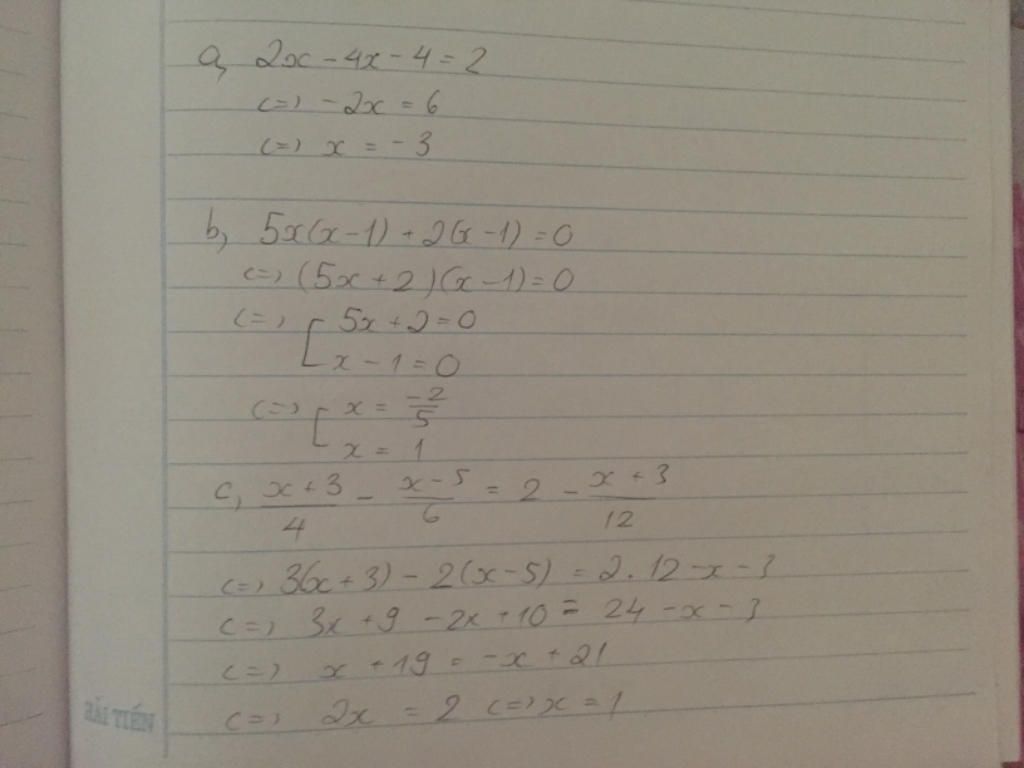 a, 2x - 4x - 4 = 2
<=> -2x = 6
<=> x = -3
b, 5x(x-1) + 2(x-1) = 0
<=> (5x+2)(x-1) = 0
<=> [ 5x+2=0
x - 1 = 0
<=> [ x = -2/5
x = 1
c, (x+3)/4 - (x-5)/6 = 2 - (x+3)/12
<=> 3(x+3) - 2(x-5) = 2.12 - x - 3
<=> 3x + 9 - 2x + 10 = 24 - x - 3
<=> x + 19 = -x + 21
<=> 2x = 2 <=> x = 1
HẢI TIẾN